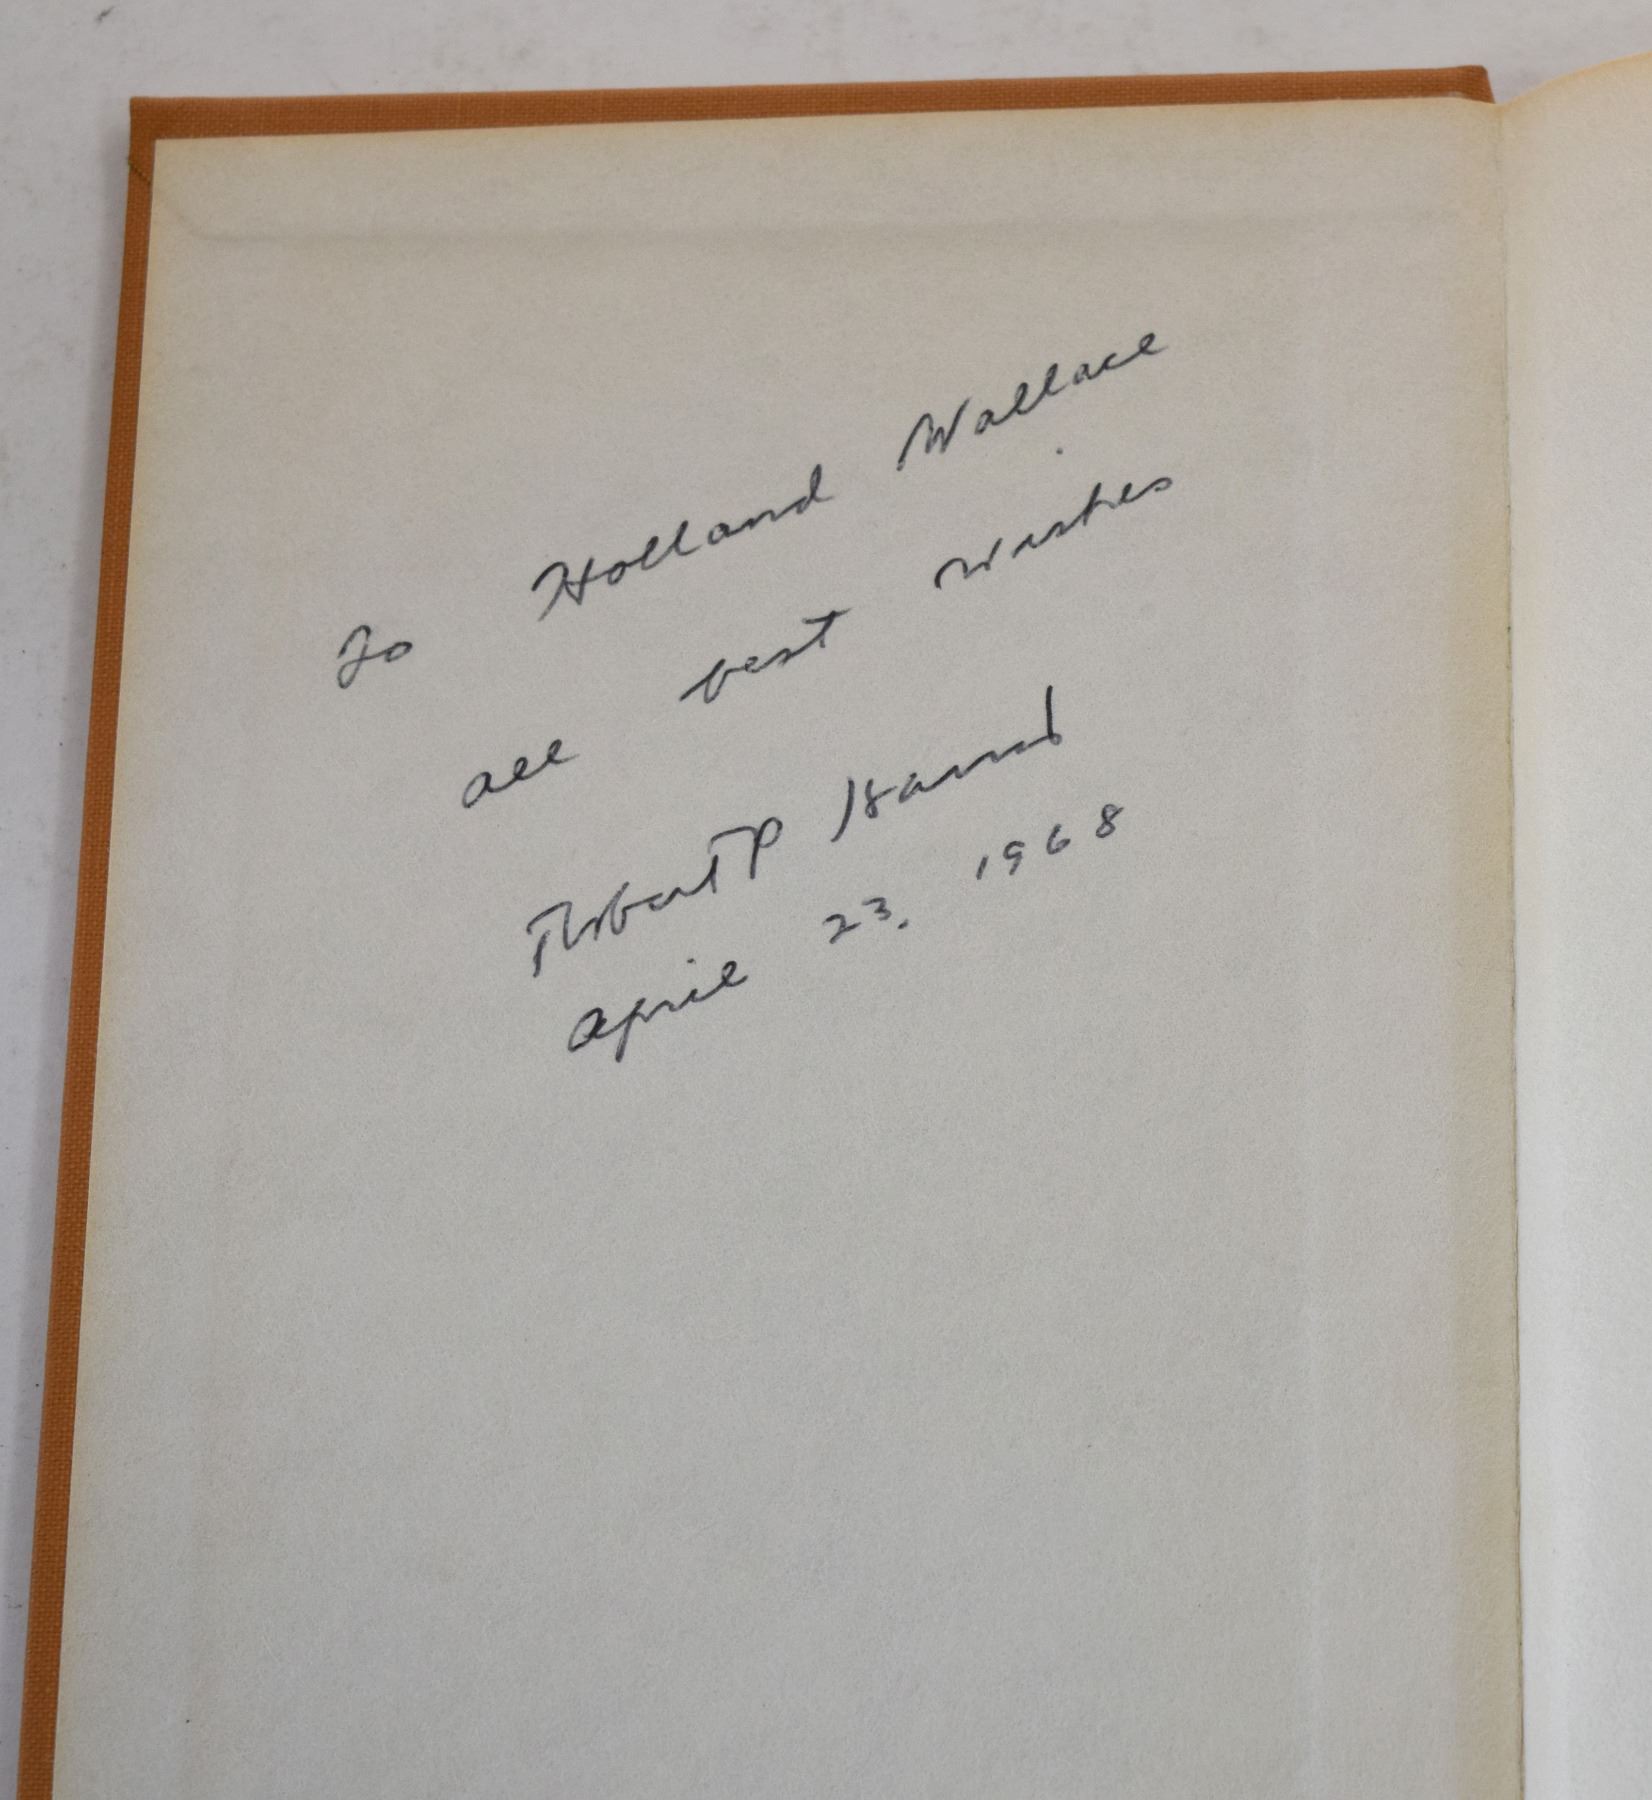 To Holland Wallace
all best wishes
Robert P
April 23, 1968